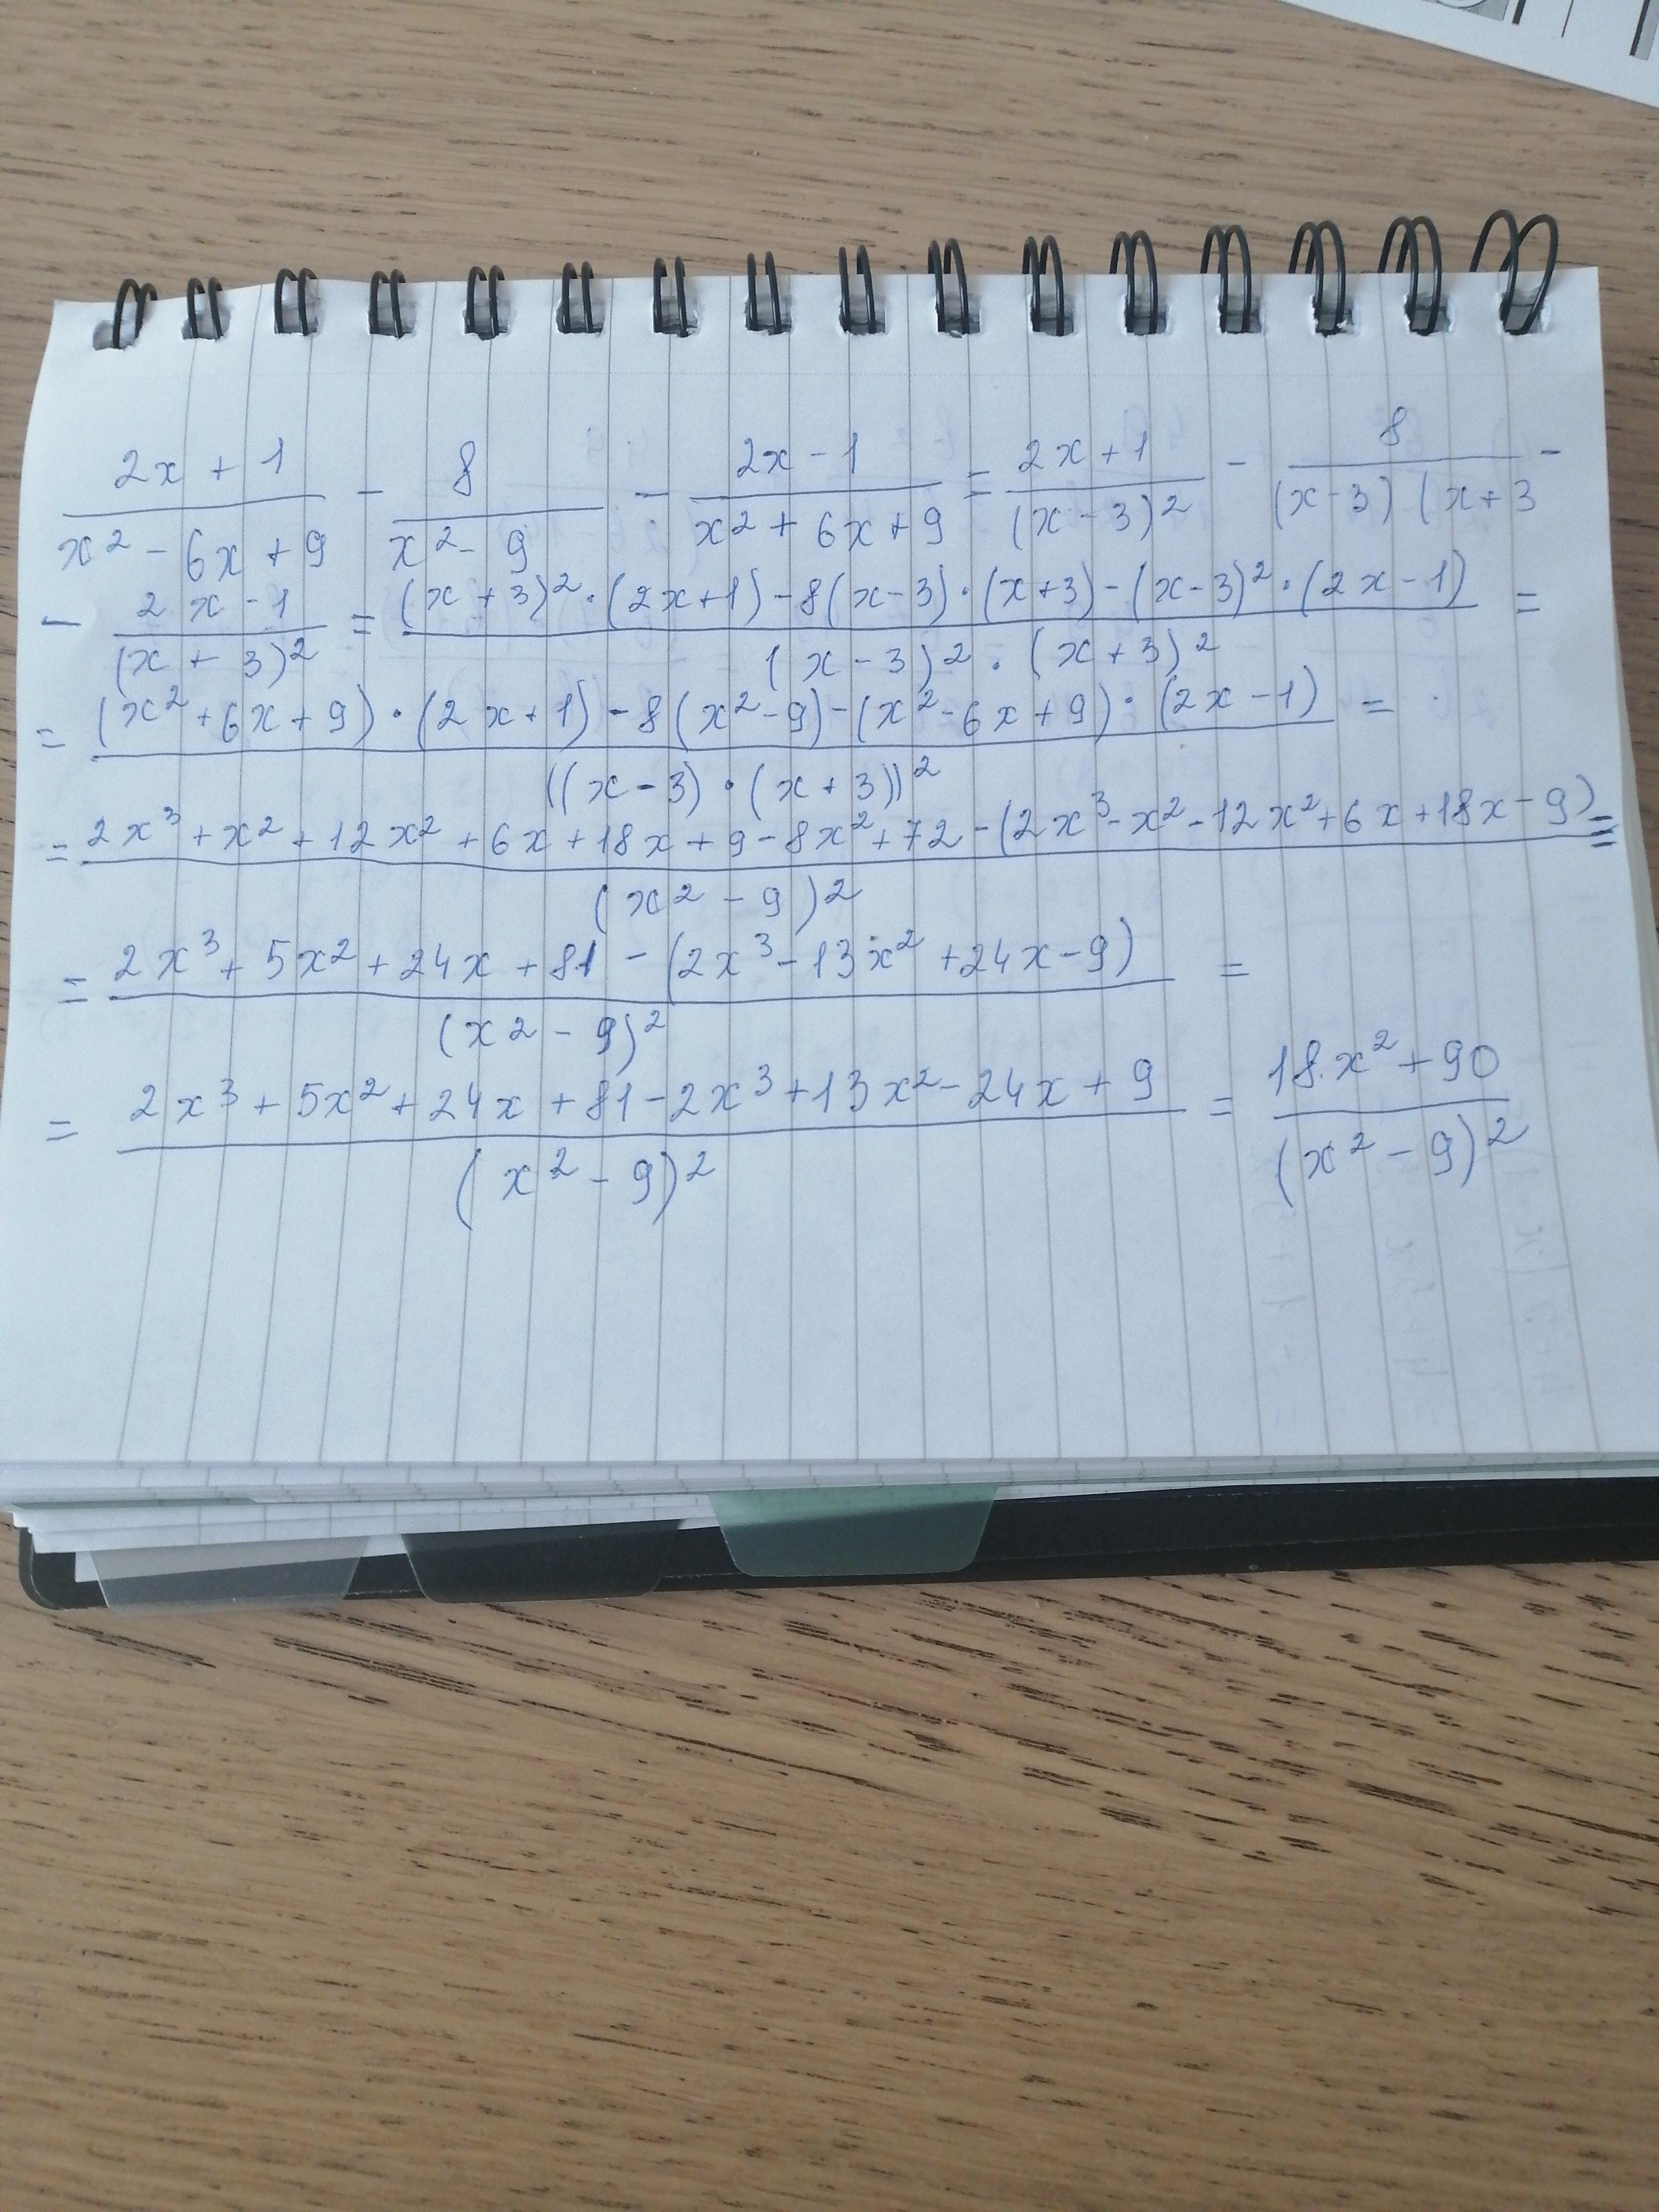 (2x + 1)/(x² - 6x + 9) - 8/(x² - 9) - (2x - 1)/(x² + 6x + 9) = (2x + 1)/(x - 3)² - 8/((x - 3) (x + 3 -
- (2x - 1)/(x + 3)² = ((x + 3)² · (2x + 1) - 8(x - 3) · (x + 3) - (x - 3)² · (2x - 1))/((x - 3)² · (x + 3)²) =
= ((x² + 6x + 9) · (2x + 1) - 8(x² - 9) - (x² - 6x + 9) · (2x - 1))/((x - 3) · (x + 3))² =
= (2x³ + x² + 12x² + 6x + 18x + 9 - 8x² + 72 - (2x³ - x² - 12x² + 6x + 18x - 9))/(x² - 9)² =
= (2x³ + 5x² + 24x + 81 - (2x³ - 13x² + 24x - 9))/(x² - 9)² =
= (2x³ + 5x² + 24x + 81 - 2x³ + 13x² - 24x + 9)/(x² - 9)² = (18x² + 90)/(x² - 9)²